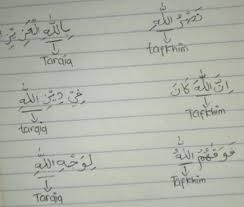 نَصْرُ اللّٰهِ
tafkhim
بِاللّٰهِ الْعَزِيْزِ
Tarqiq
اِنَّ اللّٰهَ كَانَ
Tafkhim
فِيْ دِيْنِ اللّٰهِ
tarqiq
اللّٰهُ
Tafkhim
لِوَجْهِ اللّٰهِ
Tarqiq